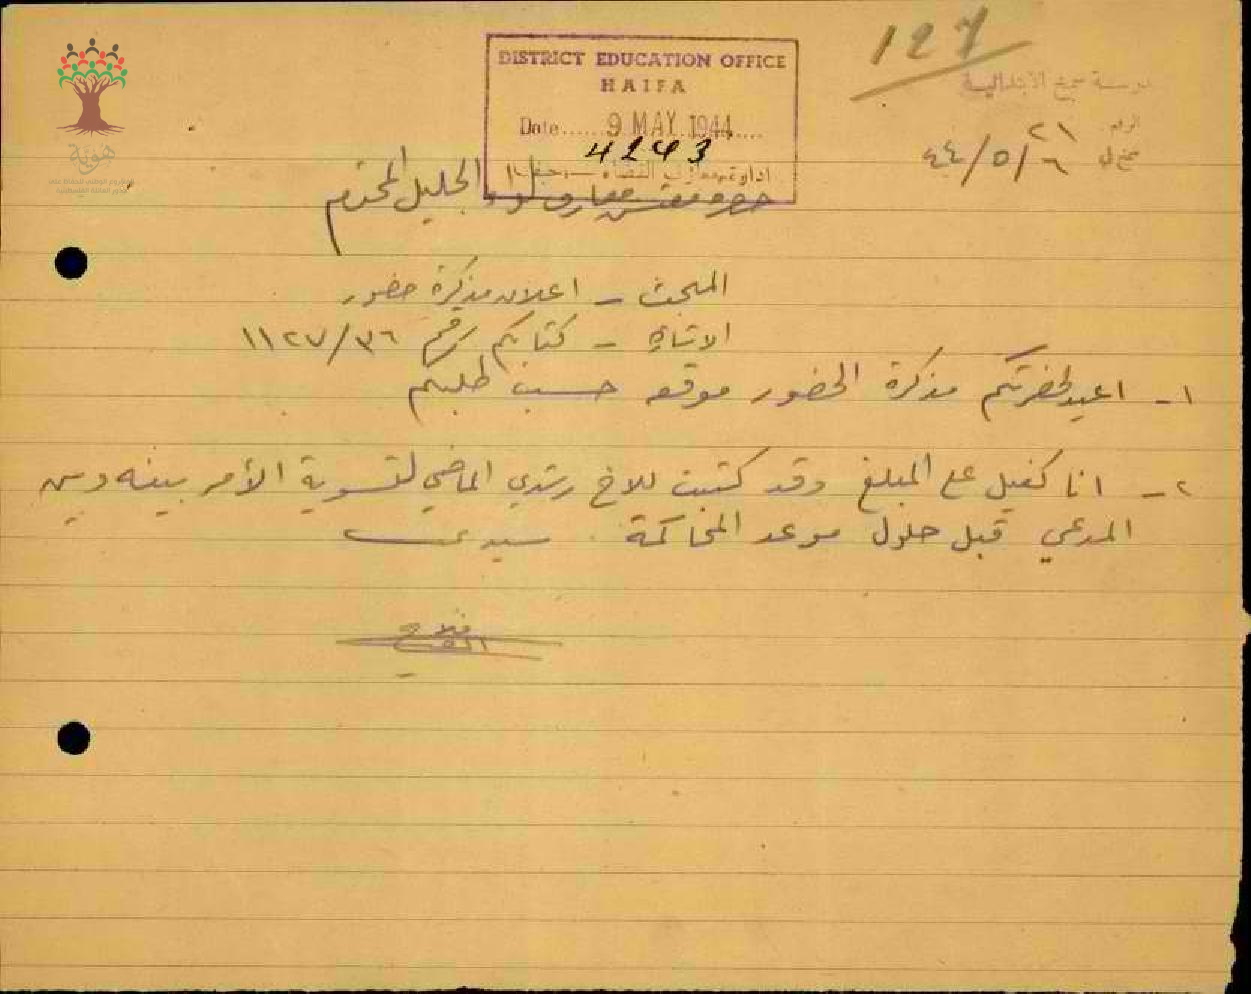 127
DISTRICT EDUCATION OFFICE
HAIFA
Date...... 9 MAY 1944....
4243
مدرسة سمخ الابتدائية
الرقم ٢١
سمخ في ٦/٥/٤٤
هوية
حضرة مفتش معارف لواء الجليل المحترم
المبحث - اعلان مذكرة حضور
الاشارة - كتابكم رقم ١١٢٧/٣٦
١- اعيد لحضرتكم مذكرة الحضور موقعه حسب طلبكم
٢- انا كفيل على المبلغ وقد كتبت للاخ رشدي الماضي لتسوية الأمر بينه وبين
المدعي قبل حلول موعد المحاكمة. سيدي